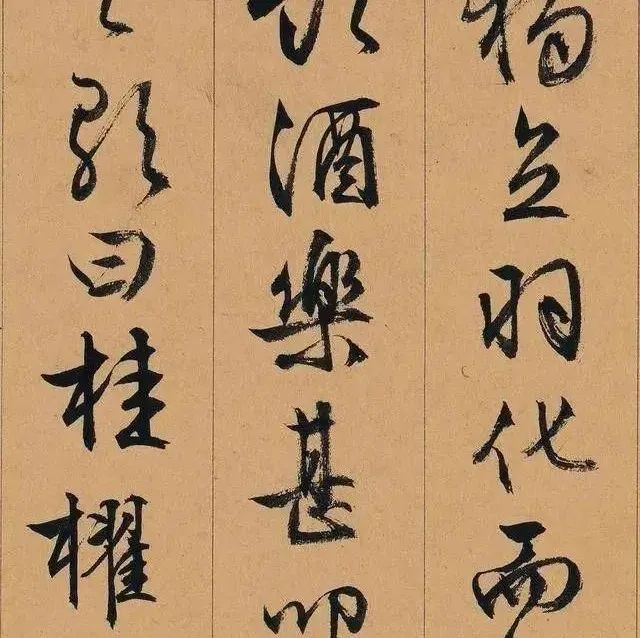 獨立羽化而
飲酒樂甚叩
歌曰桂櫂